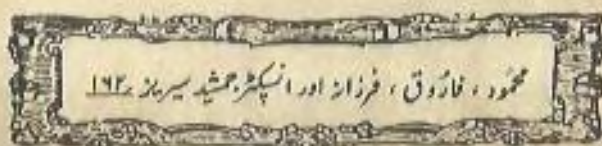 محمود ، فاروق ، فرزانہ اور انسپکٹر جمشید سیریز ۱۶۲